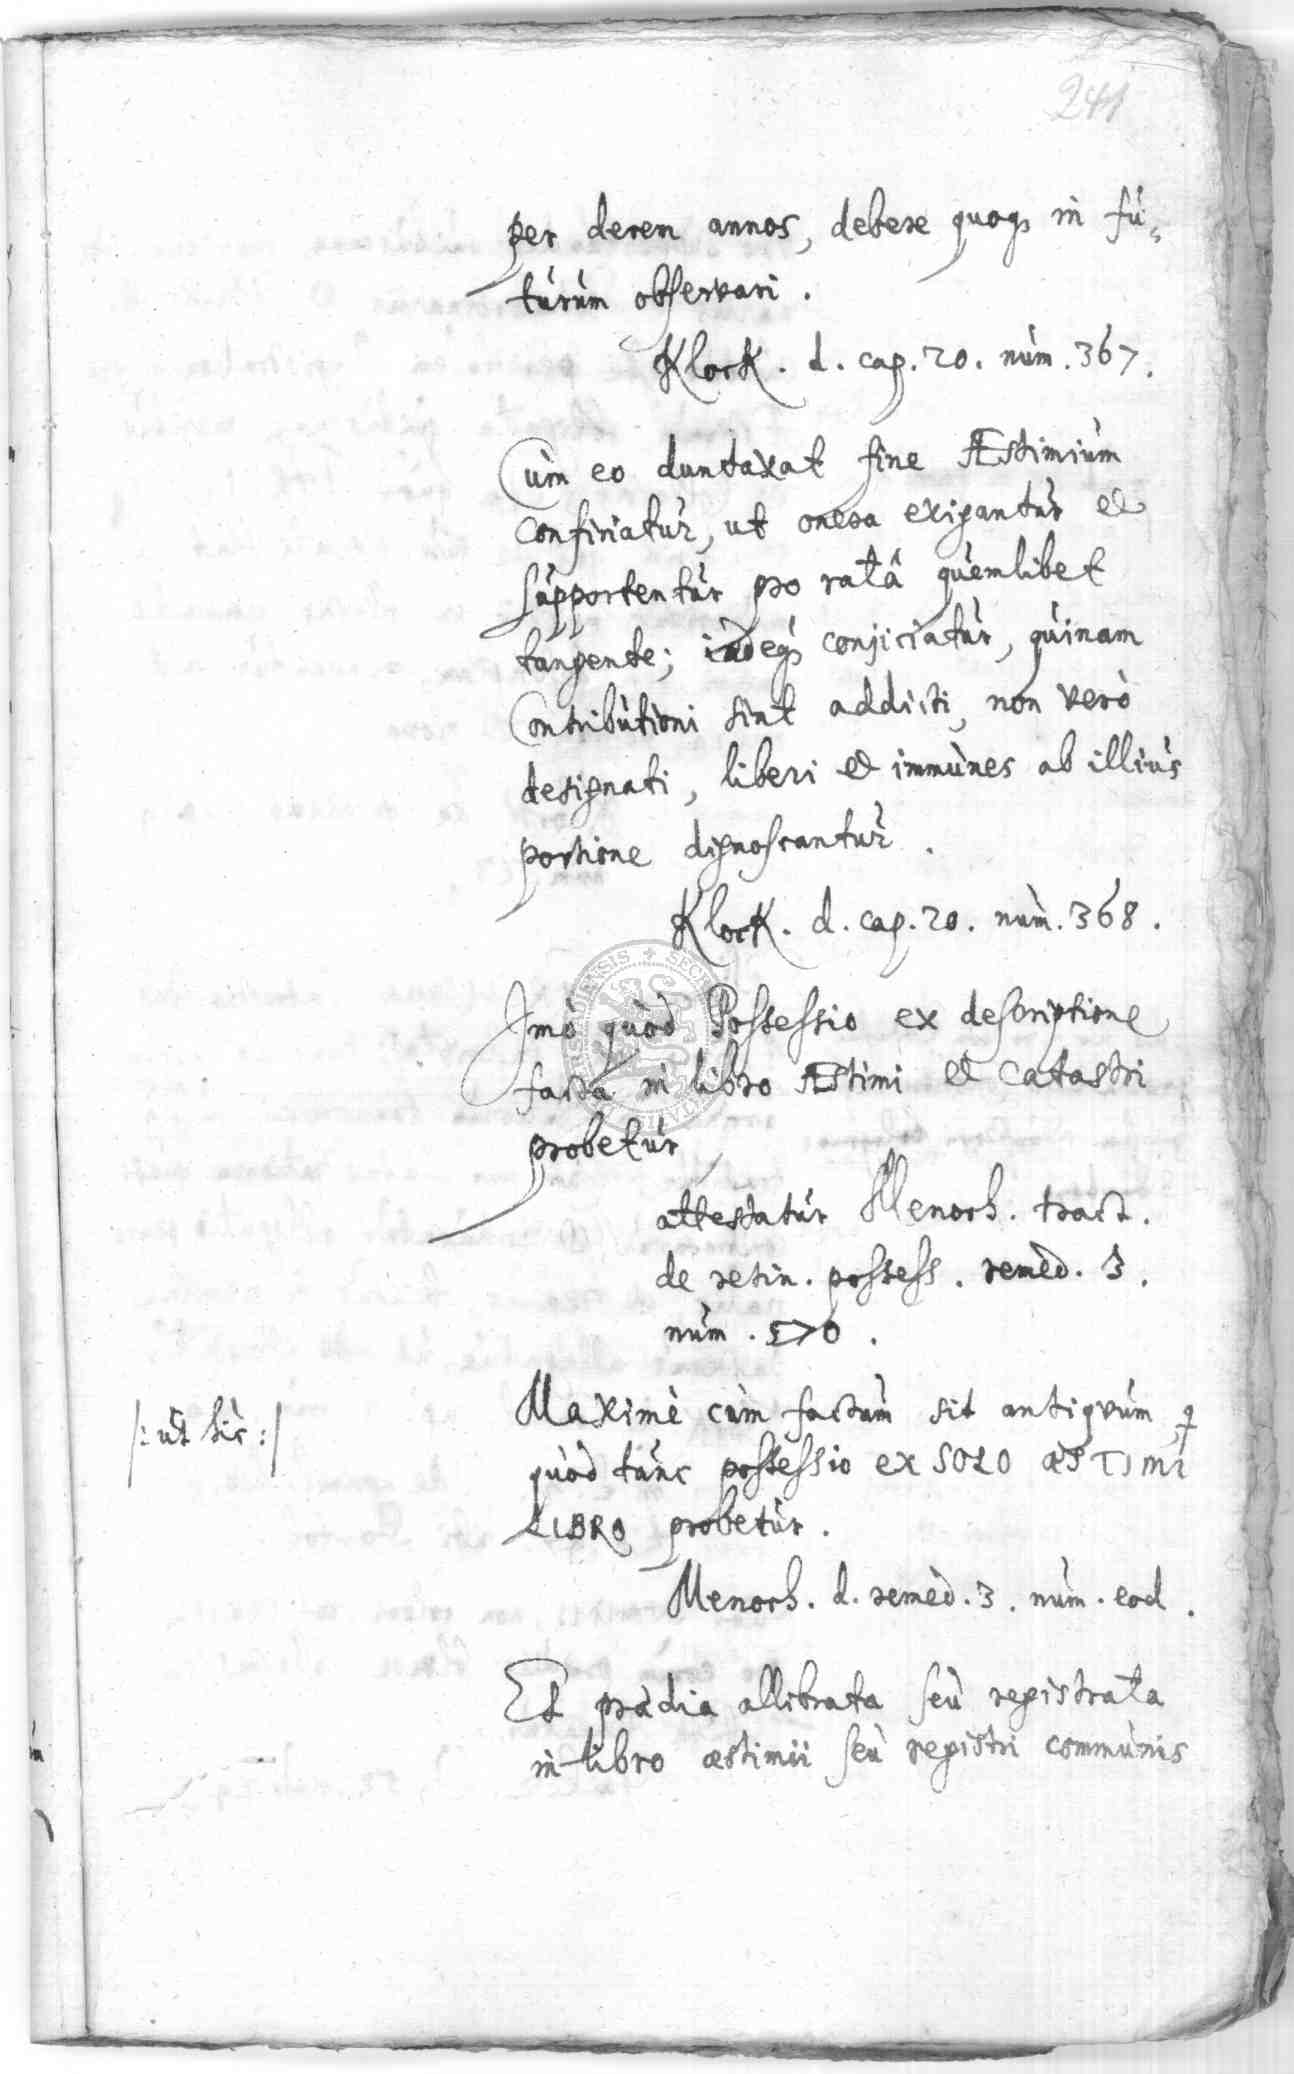 241
per decem annos, debere quoqs in fu-
turum observari.
Klock. d. cap. 20. num. 367.
Cum eo duntaxat fine Æstimium
conficiatur, ut onera exigantur et
supportentur pro ratâ quemlibet
tangente; indeqs conjiciatur, quinam
Contributioni sint addicti, non verò
designati, liberi et immunes ab illius
portione dignoscantur.
Klock. d. cap. 20. num. 368.
Imò quòd Possessio ex descriptione
facta in libro Æstimi et Catastri
probetur
attestatur Menoch. tract.
de retin. possess. remed. 3.
num. 570.
/: ut hic :/
Maximè cum factum sit antiqvum,
quòd tunc possessio ex SOLO ÆSTIMI
LIBRO probetur.
Menoch. d. remed. 3. num. eod.
Et prædia allibrata seu registrata
in libro æstimii seu registri communis